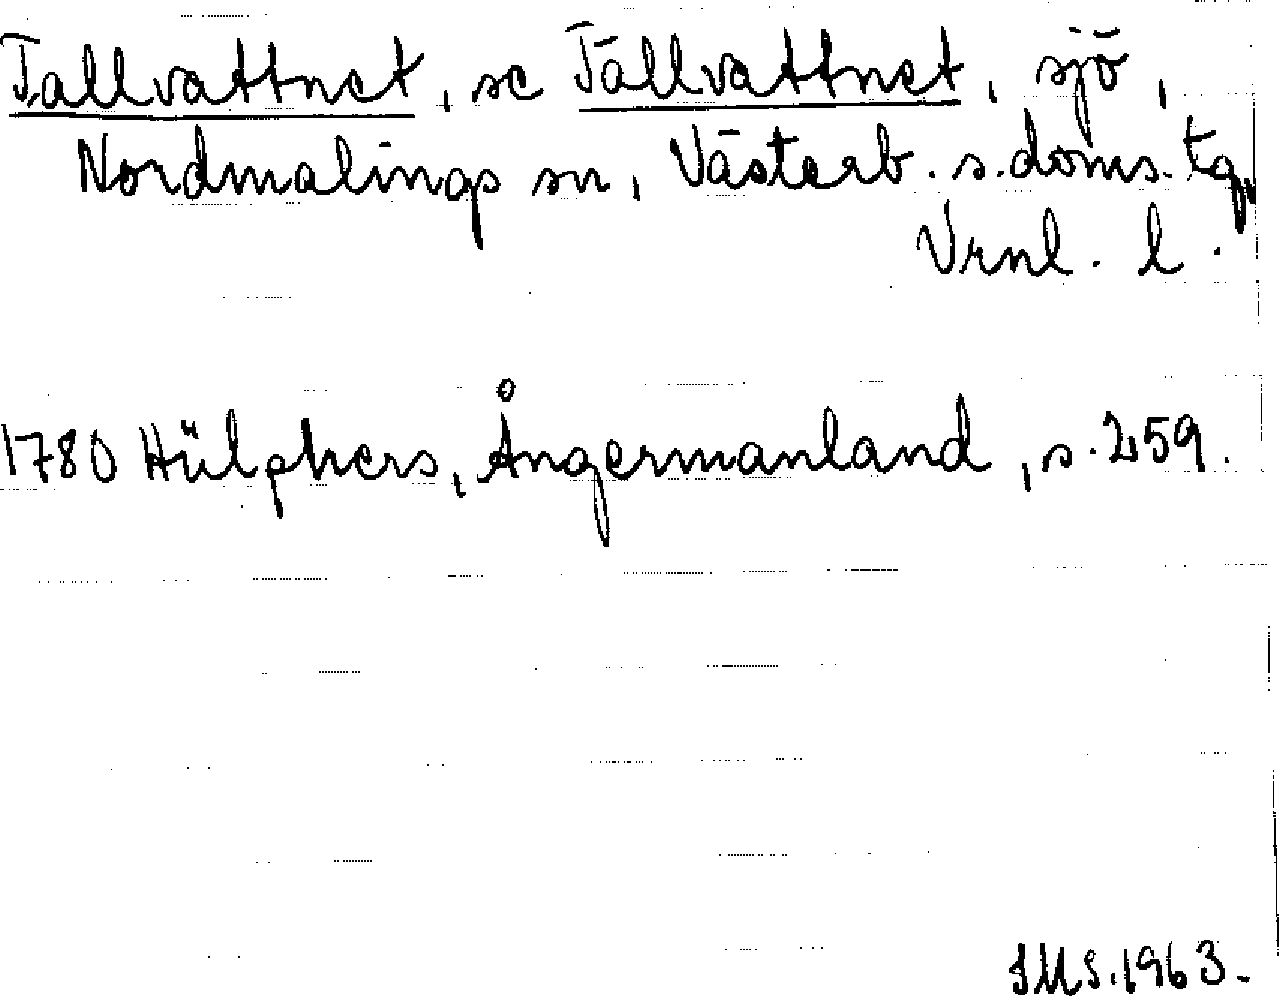 Tallvattnet, se Tällvattnet, sjö,
Nordmalings sn, Västerb. s. doms. tg,
Vrnl. l.
1780 Hülphers, Ångermanland, s. 259.
SMS. 1963.